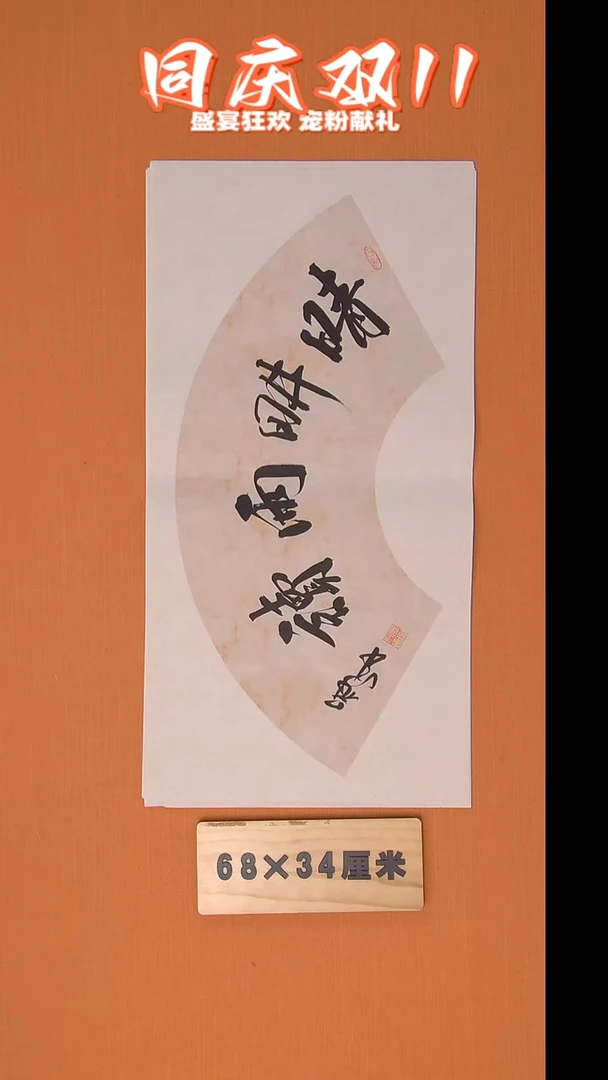 同庆双11
盛宴狂欢 宠粉献礼
晴畊雨讀
68×34厘米